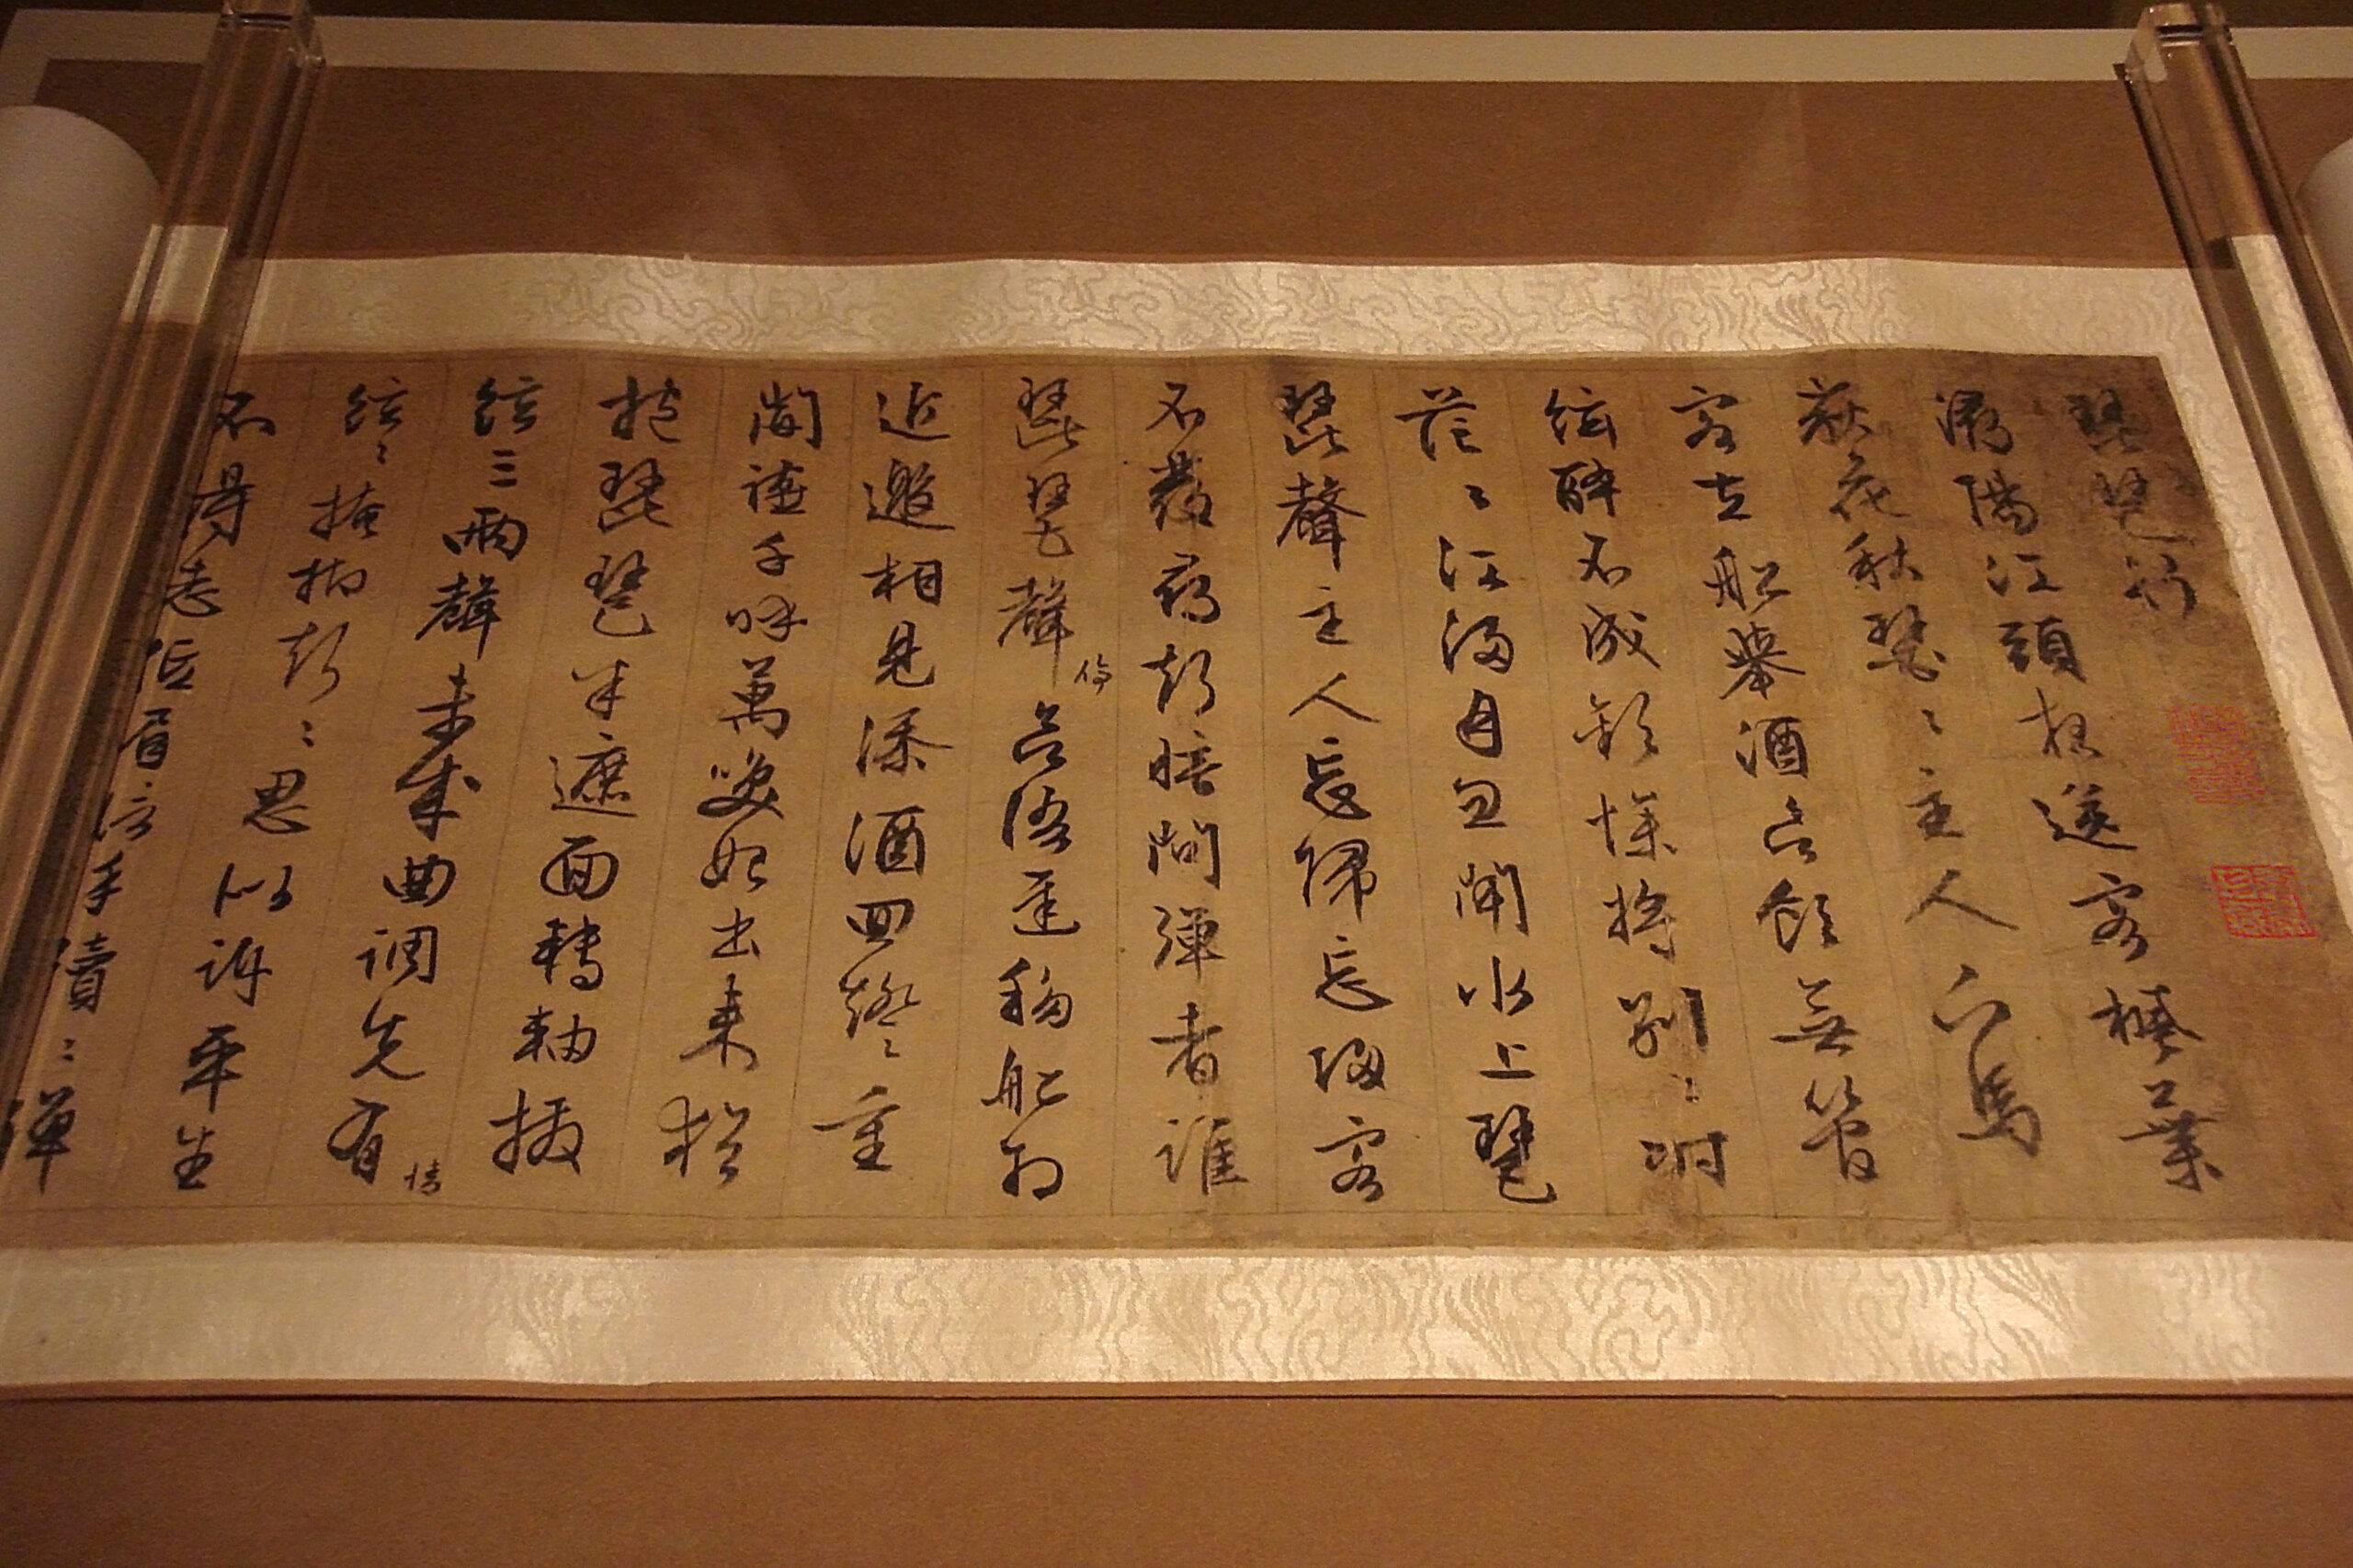 琵琶行
潯陽江頭夜送客楓葉
荻花秋瑟〻主人下馬
客在船舉酒欲飲無管
絃醉不成歡慘將別〻時
茫〻江浸月忽聞水上琶
琵聲主人忘歸忘歸客
不發尋声暗問彈者誰
琵琶聲停欲語遲移船相
近邀相見添酒回燈〻重
開讌千呼萬喚始出來猶
抱琵琶半遮面轉軸撥
絃三兩聲未成曲調先有情
絃〻掩抑声〻思似訴平生
不得志低眉信手續〻彈